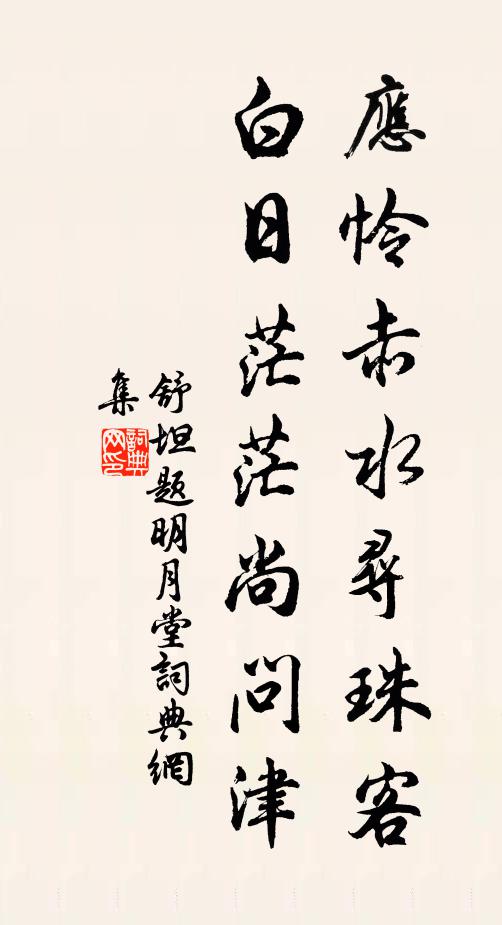 應憐赤水尋珠客
白日茫茫尚問津
舒坦題明月堂詞典網
集
詞典
网印